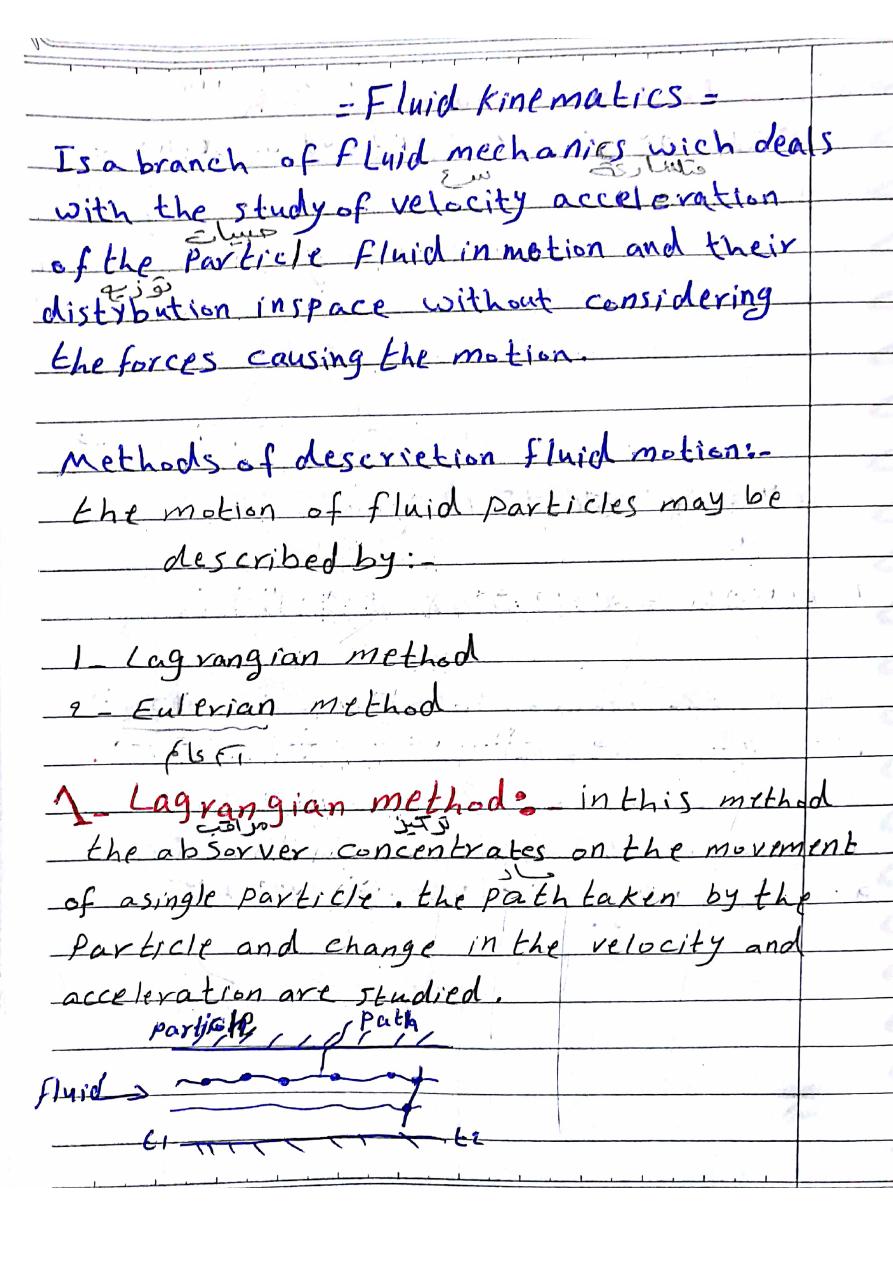 = Fluid kinematics =
Is a branch of fluid mechanics wich deals
سرع
with the study of velocity acceleration
حبيبات
of the Particle fluid in motion and their
توزيع
distrybution inspace without considering
the forces causing the motion.
Methods of descrietion fluid motion:-
the motion of fluid particles may be
described by:-
1- Lagrangian method
2- Eulerian method
1- Lagrangian method:- in this method
مراقب تركيز
the absorver concentrates on the movement
مسار
of asingle particle. the path taken by the
Particle and change in the velocity and
acceleration are studied.
particle path
fluid →
t1 t2